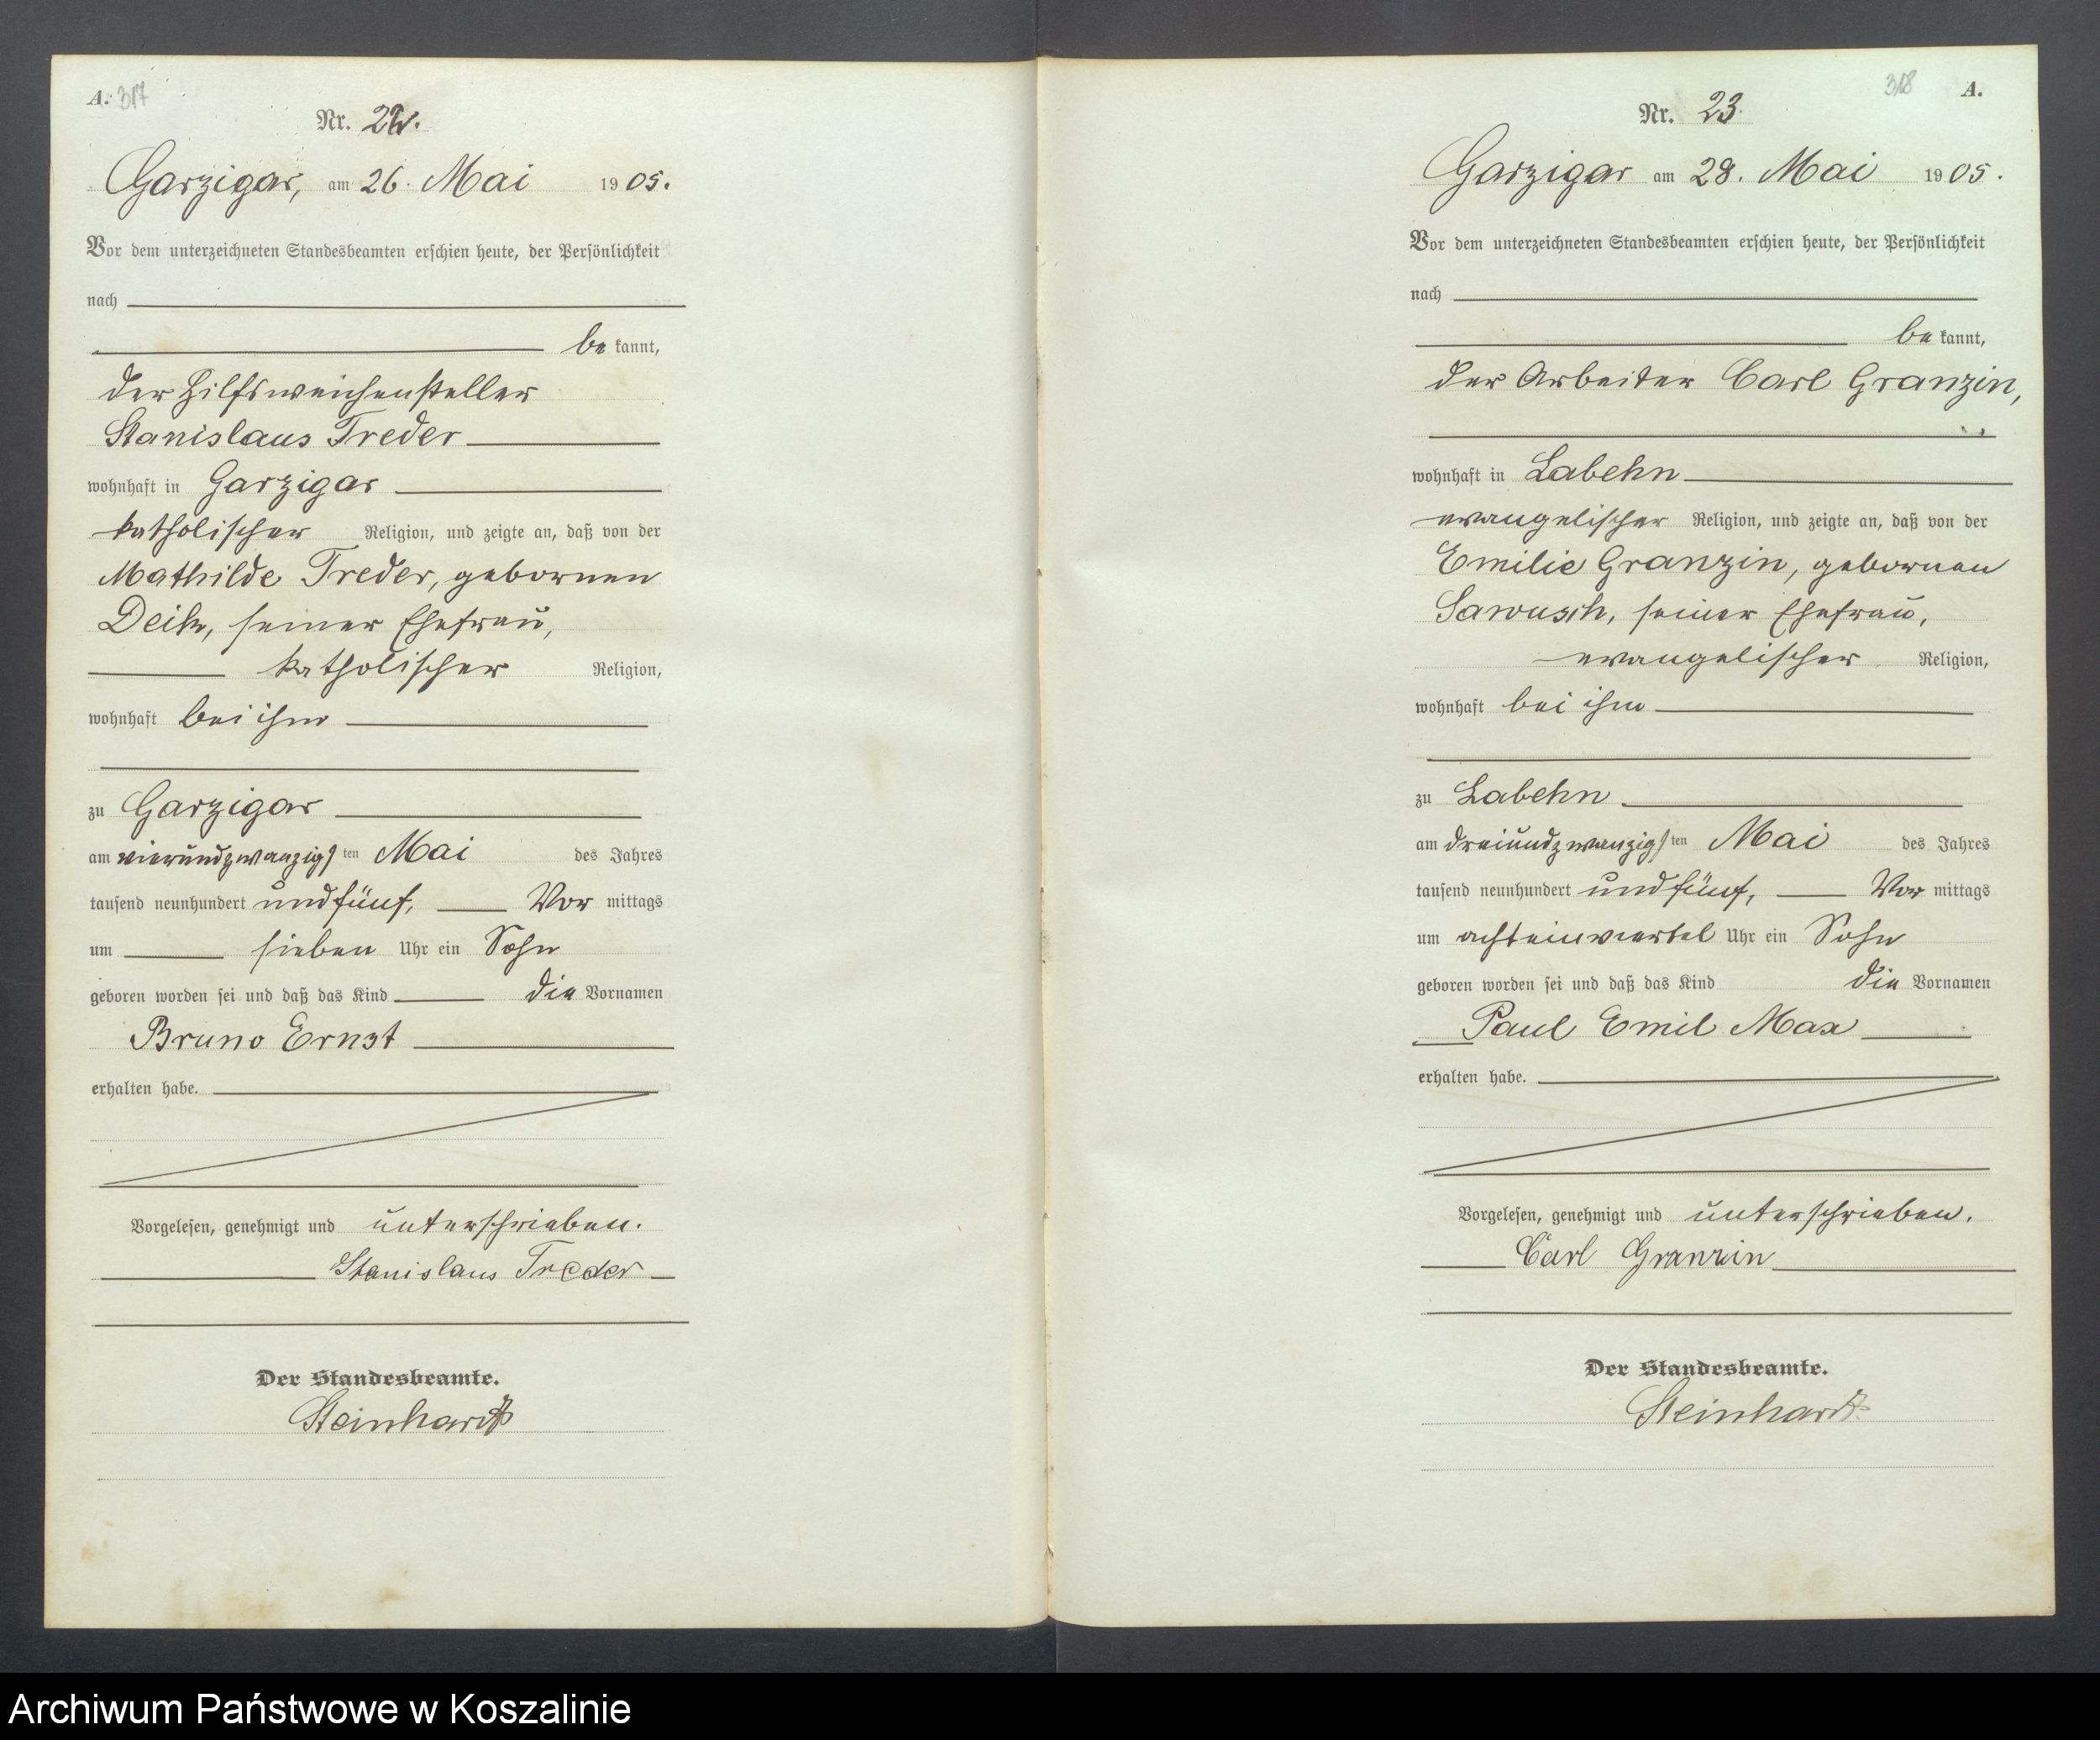 A. 317
Nr. 22.
Garzigar, am 26. Mai 1905.
Vor dem unterzeichneten Standesbeamten erschien heute, der Persönlichkeit
nach
be kannt,
der Hilfsweichensteller
Stanislaus Treder
wohnhaft in Garzigar
katholischer Religion, und zeigte an, daß von der
Mathilde Treder, gebornen
seiner Ehefrau,
katholischer Religion,
wohnhaft bei ihm
zu Garzigar
am vierundzwanzigsten Mai des Jahres
tausend neunhundert und fünf, Vor mittags
um sieben Uhr ein Sohn
geboren worden sei und daß das Kind die Vornamen
Bruno Ernst
erhalten habe.
Vorgelesen, genehmigt und unterschrieben.
Stanislaus Treder
Der Standesbeamte.
Steinhardt
318 A.
Nr. 23.
Garzigar am 28. Mai 1905.
Vor dem unterzeichneten Standesbeamten erschien heute, der Persönlichkeit
nach
be kannt,
der Arbeiter Carl Granzin,
wohnhaft in Labehn
evangelischer Religion, und zeigte an, daß von der
Emilie Granzin, gebornen
Sawusch, seiner Ehefrau,
evangelischer Religion,
wohnhaft bei ihm
zu Labehn
am dreiundzwanzigsten Mai des Jahres
tausend neunhundert und fünf, Vor mittags
um achteinviertel Uhr ein Sohn
geboren worden sei und daß das Kind die Vornamen
Paul Emil Max
erhalten habe.
Vorgelesen, genehmigt und unterschrieben.
Carl Granzin
Der Standesbeamte.
Steinhardt
Archiwum Państwowe w Koszalinie